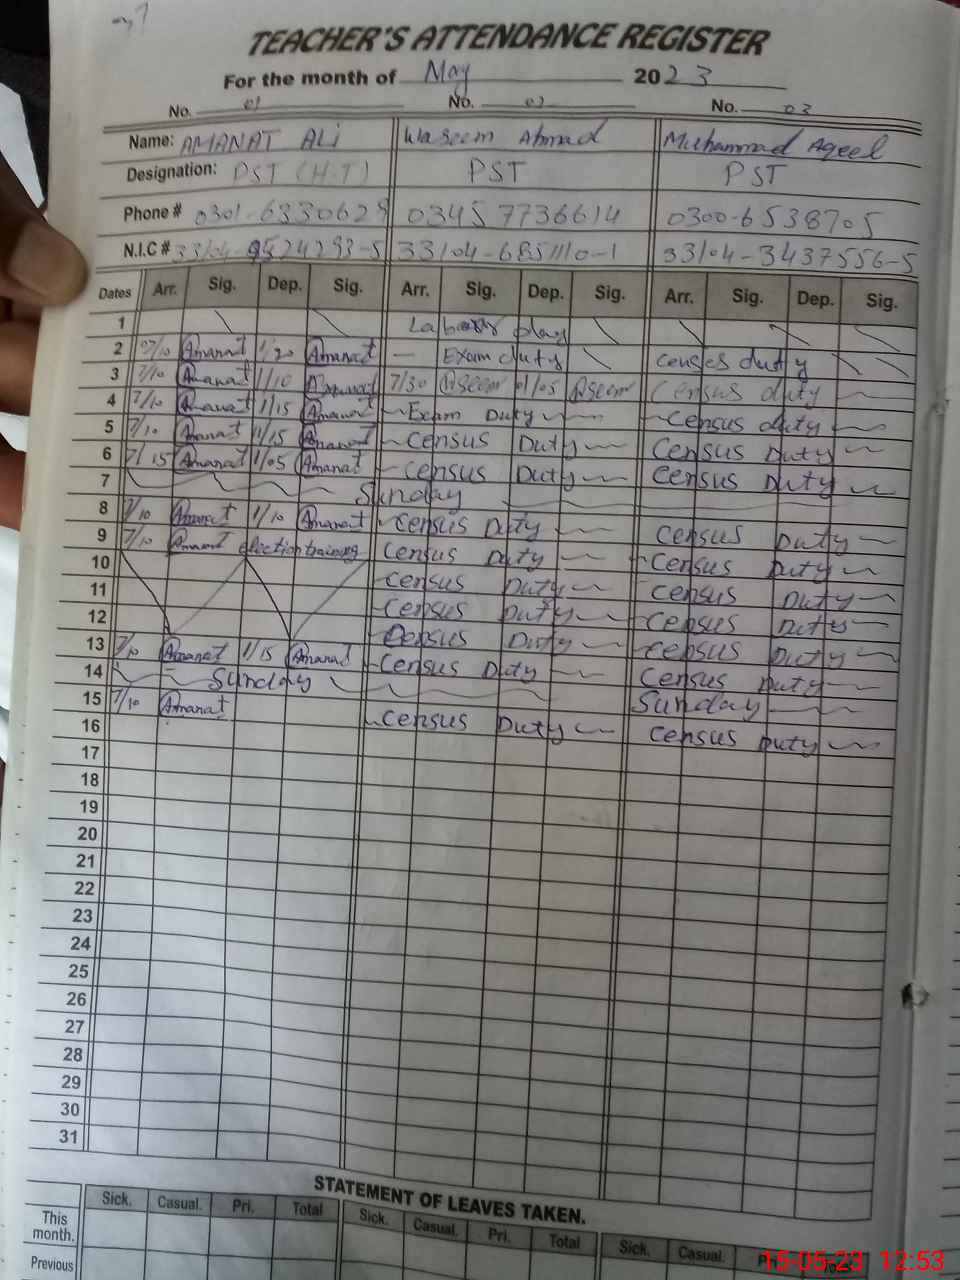 TEACHER'S ATTENDANCE REGISTER
For the month of May 2023
No. 01 No. 02 No. 03
Name: AMANAT ALi Waseem Ahmad Muhammad Aqeel
Designation: PST (H.T) PST PST
Phone # 0301-6330628 03457736614 0300-6538705
N.I.C # 33104-9524293-5 33104-6851110-1 33104-3437556-5
Dates Arr. Sig. Dep. Sig. Arr. Sig. Dep. Sig. Arr. Sig. Dep. Sig.
1 Labour day
2 07/10 Amanat 1/20 Amanat — Exam duty censes duty
3 7/10 Amanat 1/10 Amanat 7/30 01/05 Census duty
4 7/10 Amanat 1/15 Amanat Exam Duty Census duty
5 7/10 Amanat 1/15 Amanat Census Duty Census Duty
6 7/15 Amanat 1/05 Amanat Census Duty Census Duty
7 Sunday
8 7/10 Amanat 1/10 Amanat Census Duty Census Duty
9 7/10 Amanat election training Census Duty Census Duty
10 Census Duty Census Duty
11 Census Duty Census Duty
12 Census Duty Census Duty
13 7/10 Amanat 1/15 Amanat Census Duty Census Duty
14 Sunday Sunday
15 7/10 Amanat Census Duty Census Duty
16
17
18
19
20
21
22
23
24
25
26
27
28
29
30
31
STATEMENT OF LEAVES TAKEN.
Sick. Casual. Pri. Total Sick. Casual. Pri. Total Sick. Casual.
This month.
Previous
15-05-23 12:53